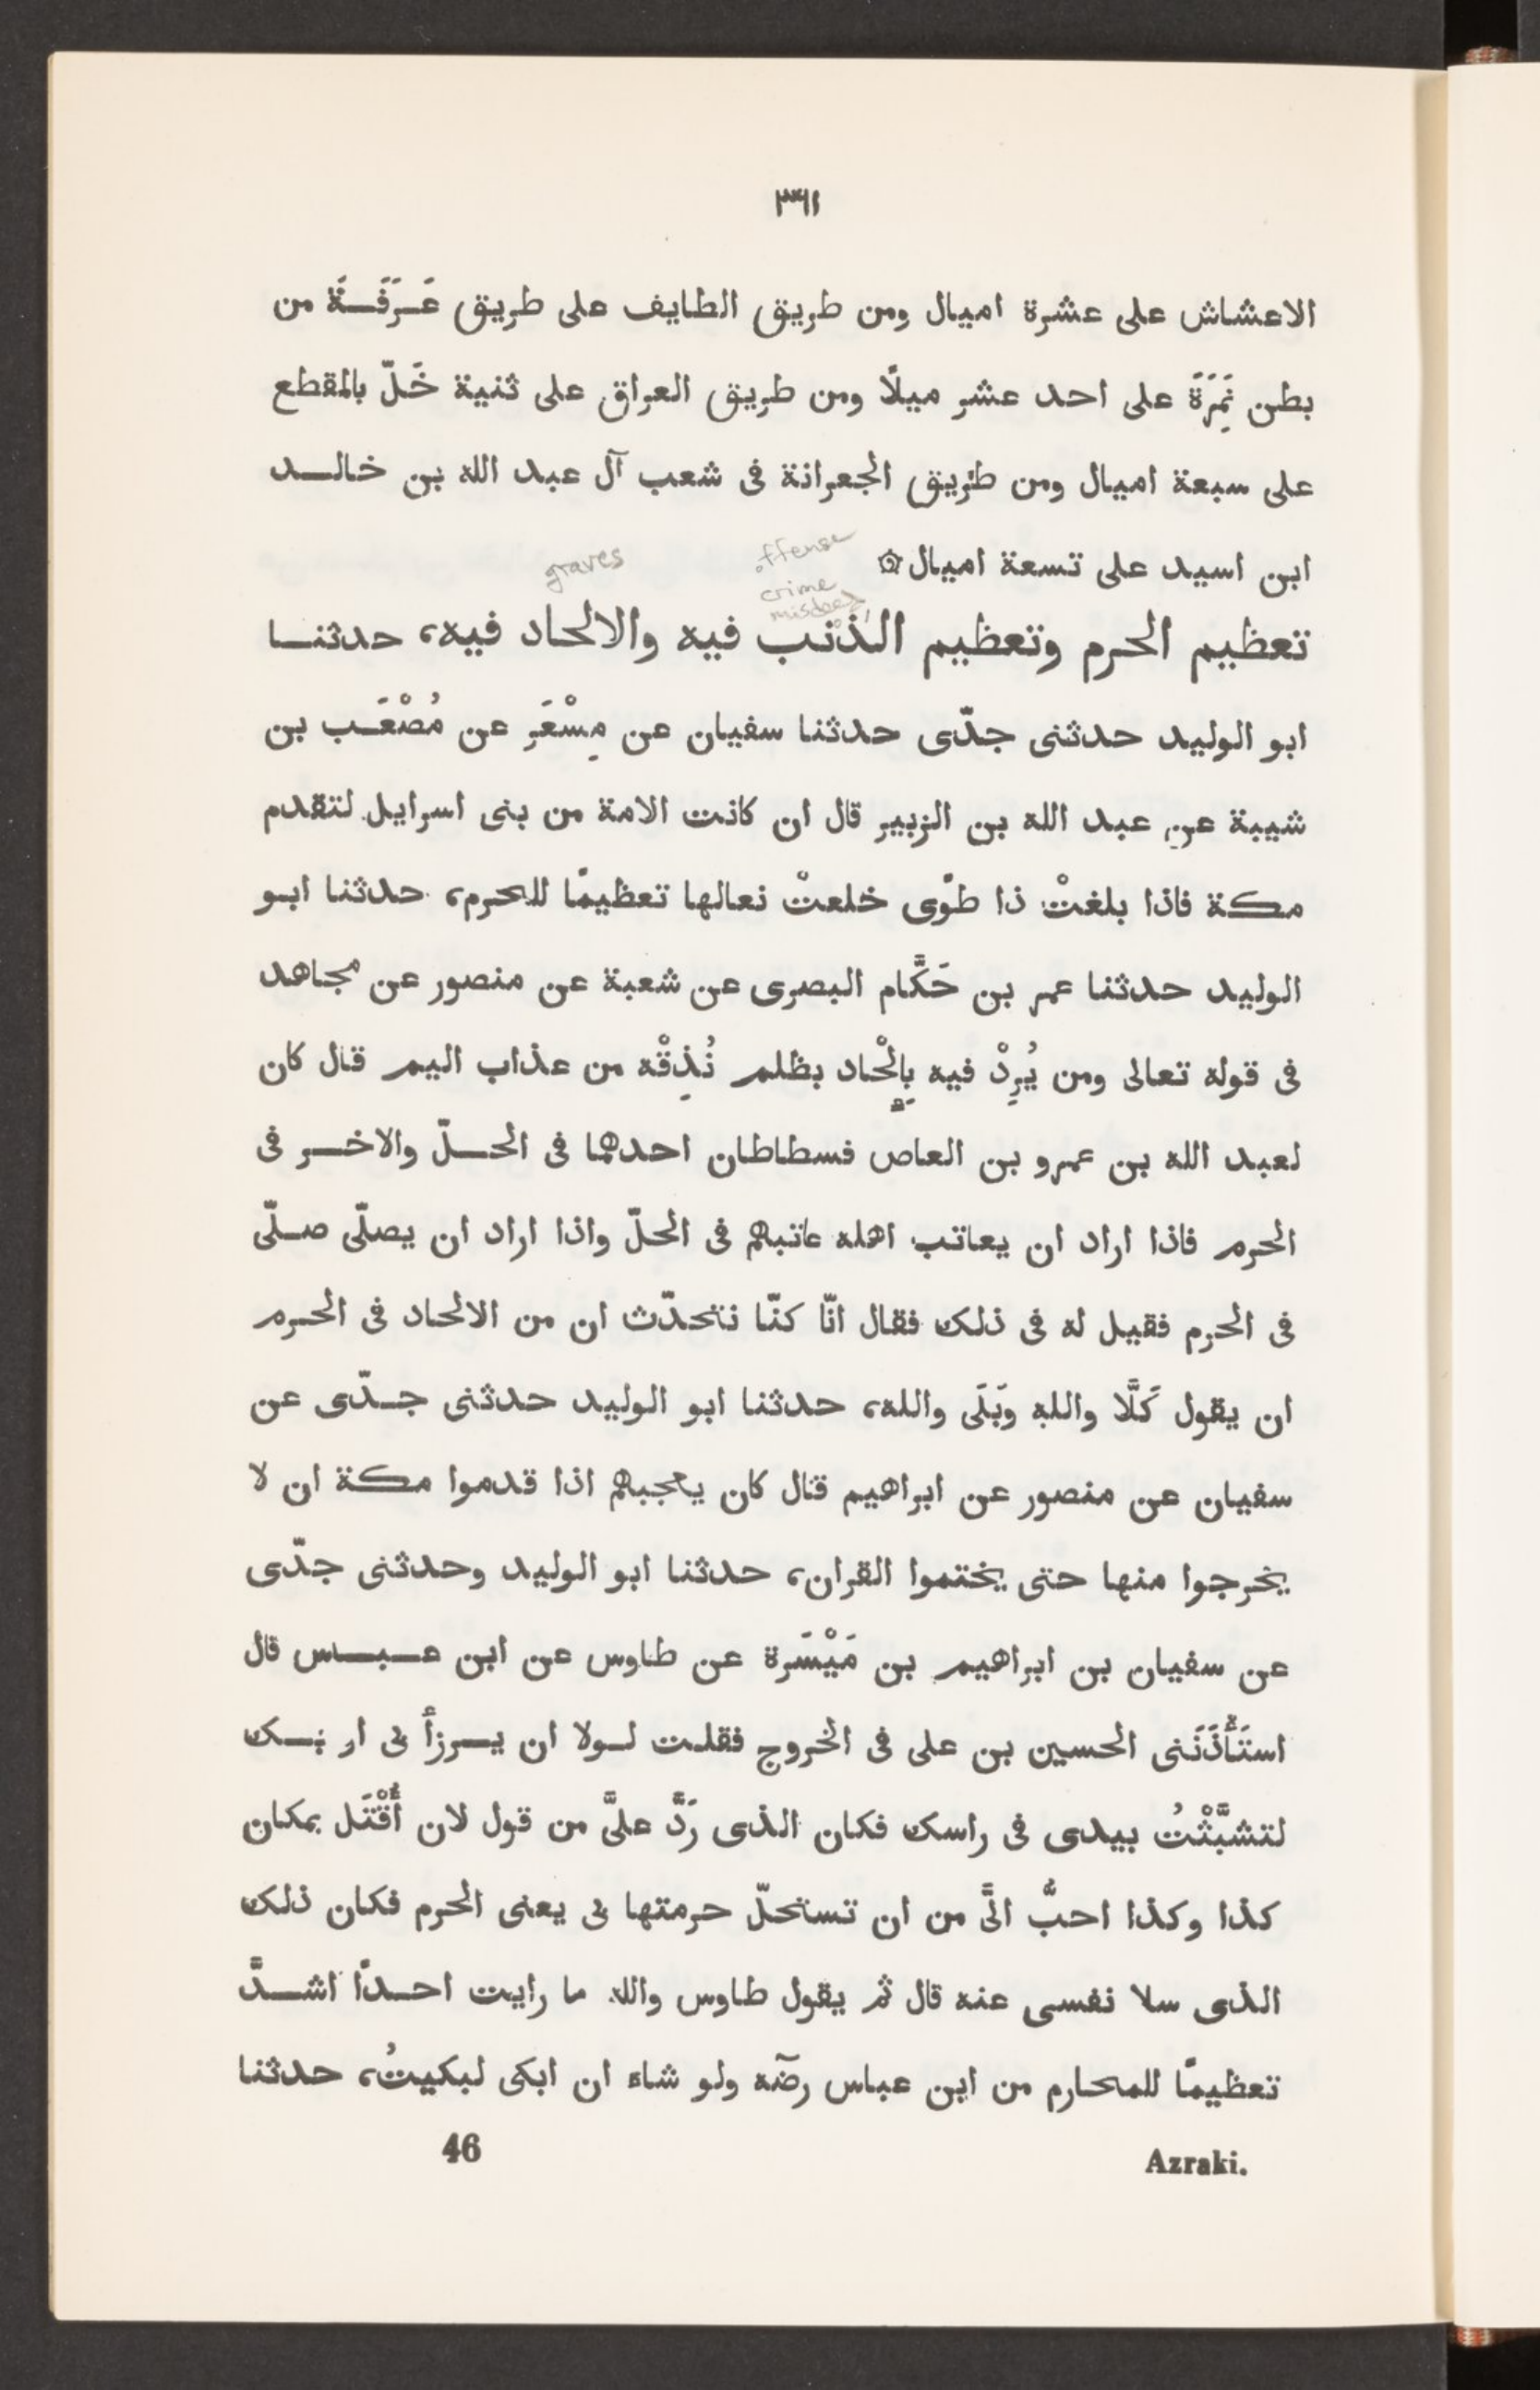 ٣٦١
الاعشاش على عشرة اميال ومن طريق الطايف على طريق عَرَفَةَ من
بطن نَمِرَةَ على احد عشر ميلًا ومن طريق العراق على ثنية خَلّ بالمقطع
على سبعة اميال ومن طريق الجعرانة فى شعب آل عبد الله بن خالد
ابن اسيد على تسعة اميال ۞
graves
offense
crime
misdeed
تعظيم الحرم وتعظيم الذنب فيه والالحاد فيه، حدثنا
ابو الوليد حدثنى جدّى حدثنا سفيان عن مِسْعَر عن مُصْعَب بن
شيبة عن عبد الله بن الزبير قال ان كانت الامة من بنى اسرايل لتقدم
مكة فاذا بلغتْ ذا طوًى خلعتْ نعالها تعظيمًا للحرم، حدثنا ابو
الوليد حدثنا عمر بن حَكَّام البصرى عن شعبة عن منصور عن مجاهد
فى قوله تعالى ومن يُرِدْ فيه بِإِلْحاد بظلم نُذِقْه من عذاب اليم قال كان
لعبد الله بن عمرو بن العاص فسطاطان احدهما فى الحلّ والاخر فى
الحرم فاذا اراد ان يعاتب اهله عاتبهم فى الحلّ واذا اراد ان يصلّى صلّى
فى الحرم فقيل له فى ذلك فقال انّا كنّا نتحدّث ان من الالحاد فى الحرم
ان يقول كَلَّا واللهِ وبَلَى والله، حدثنا ابو الوليد حدثنى جدّى عن
سفيان عن منصور عن ابراهيم قال كان يعجبهم اذا قدموا مكة ان لا
يخرجوا منها حتى يختموا القران، حدثنا ابو الوليد وحدثنى جدّى
عن سفيان بن ابراهيم بن مَيْسَرة عن طاوس عن ابن عباس قال
استَأْذَنَنى الحسين بن على فى الخروج فقلت لولا ان يرزأ بى او بك
لتشبَّثْتُ بيدى فى راسك فكان الذى رَدَّ علىَّ من قول لان أُقْتَل بمكان
كذا وكذا احبُّ الىَّ من ان تستحلّ حرمتها بى يعنى الحرم فكان ذلك
الذى سلا نفسى عنه قال ثم يقول طاوس والله ما رايت احدًا اشدَّ
تعظيمًا للمحارم من ابن عباس رضه ولو شاء ان ابكى لبكيتُ، حدثنا
Azraki. 46